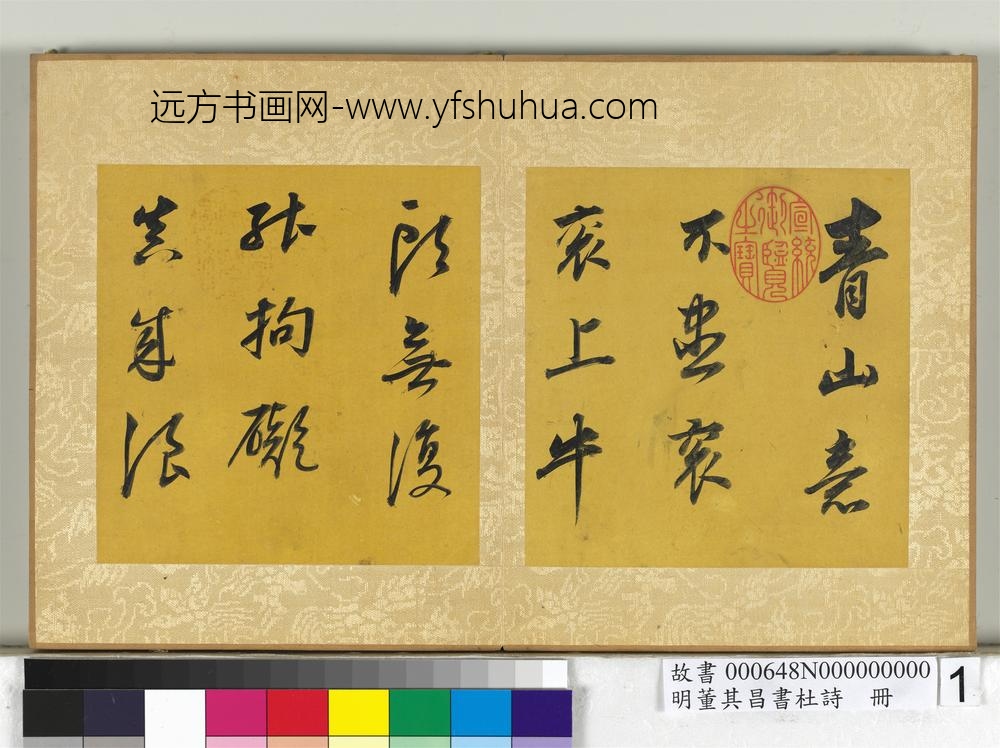 远方书画网-www.yfshuhua.com
青山意
不盡衮
衮上牛
頭無復
能拘礙
真成浪
宣統御覽之寶
故書 000648N000000000
明董其昌書杜詩 冊
1